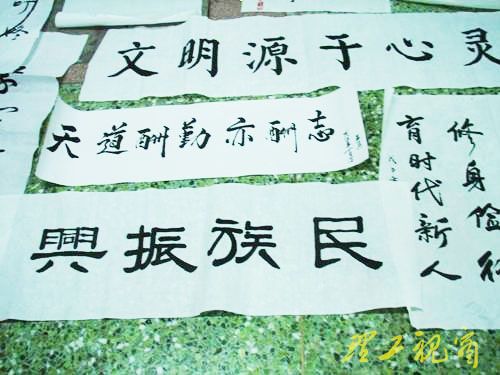 文明源于心灵
天道酬勤亦酬志
民族振興
修身
育时代新人
理工视窗